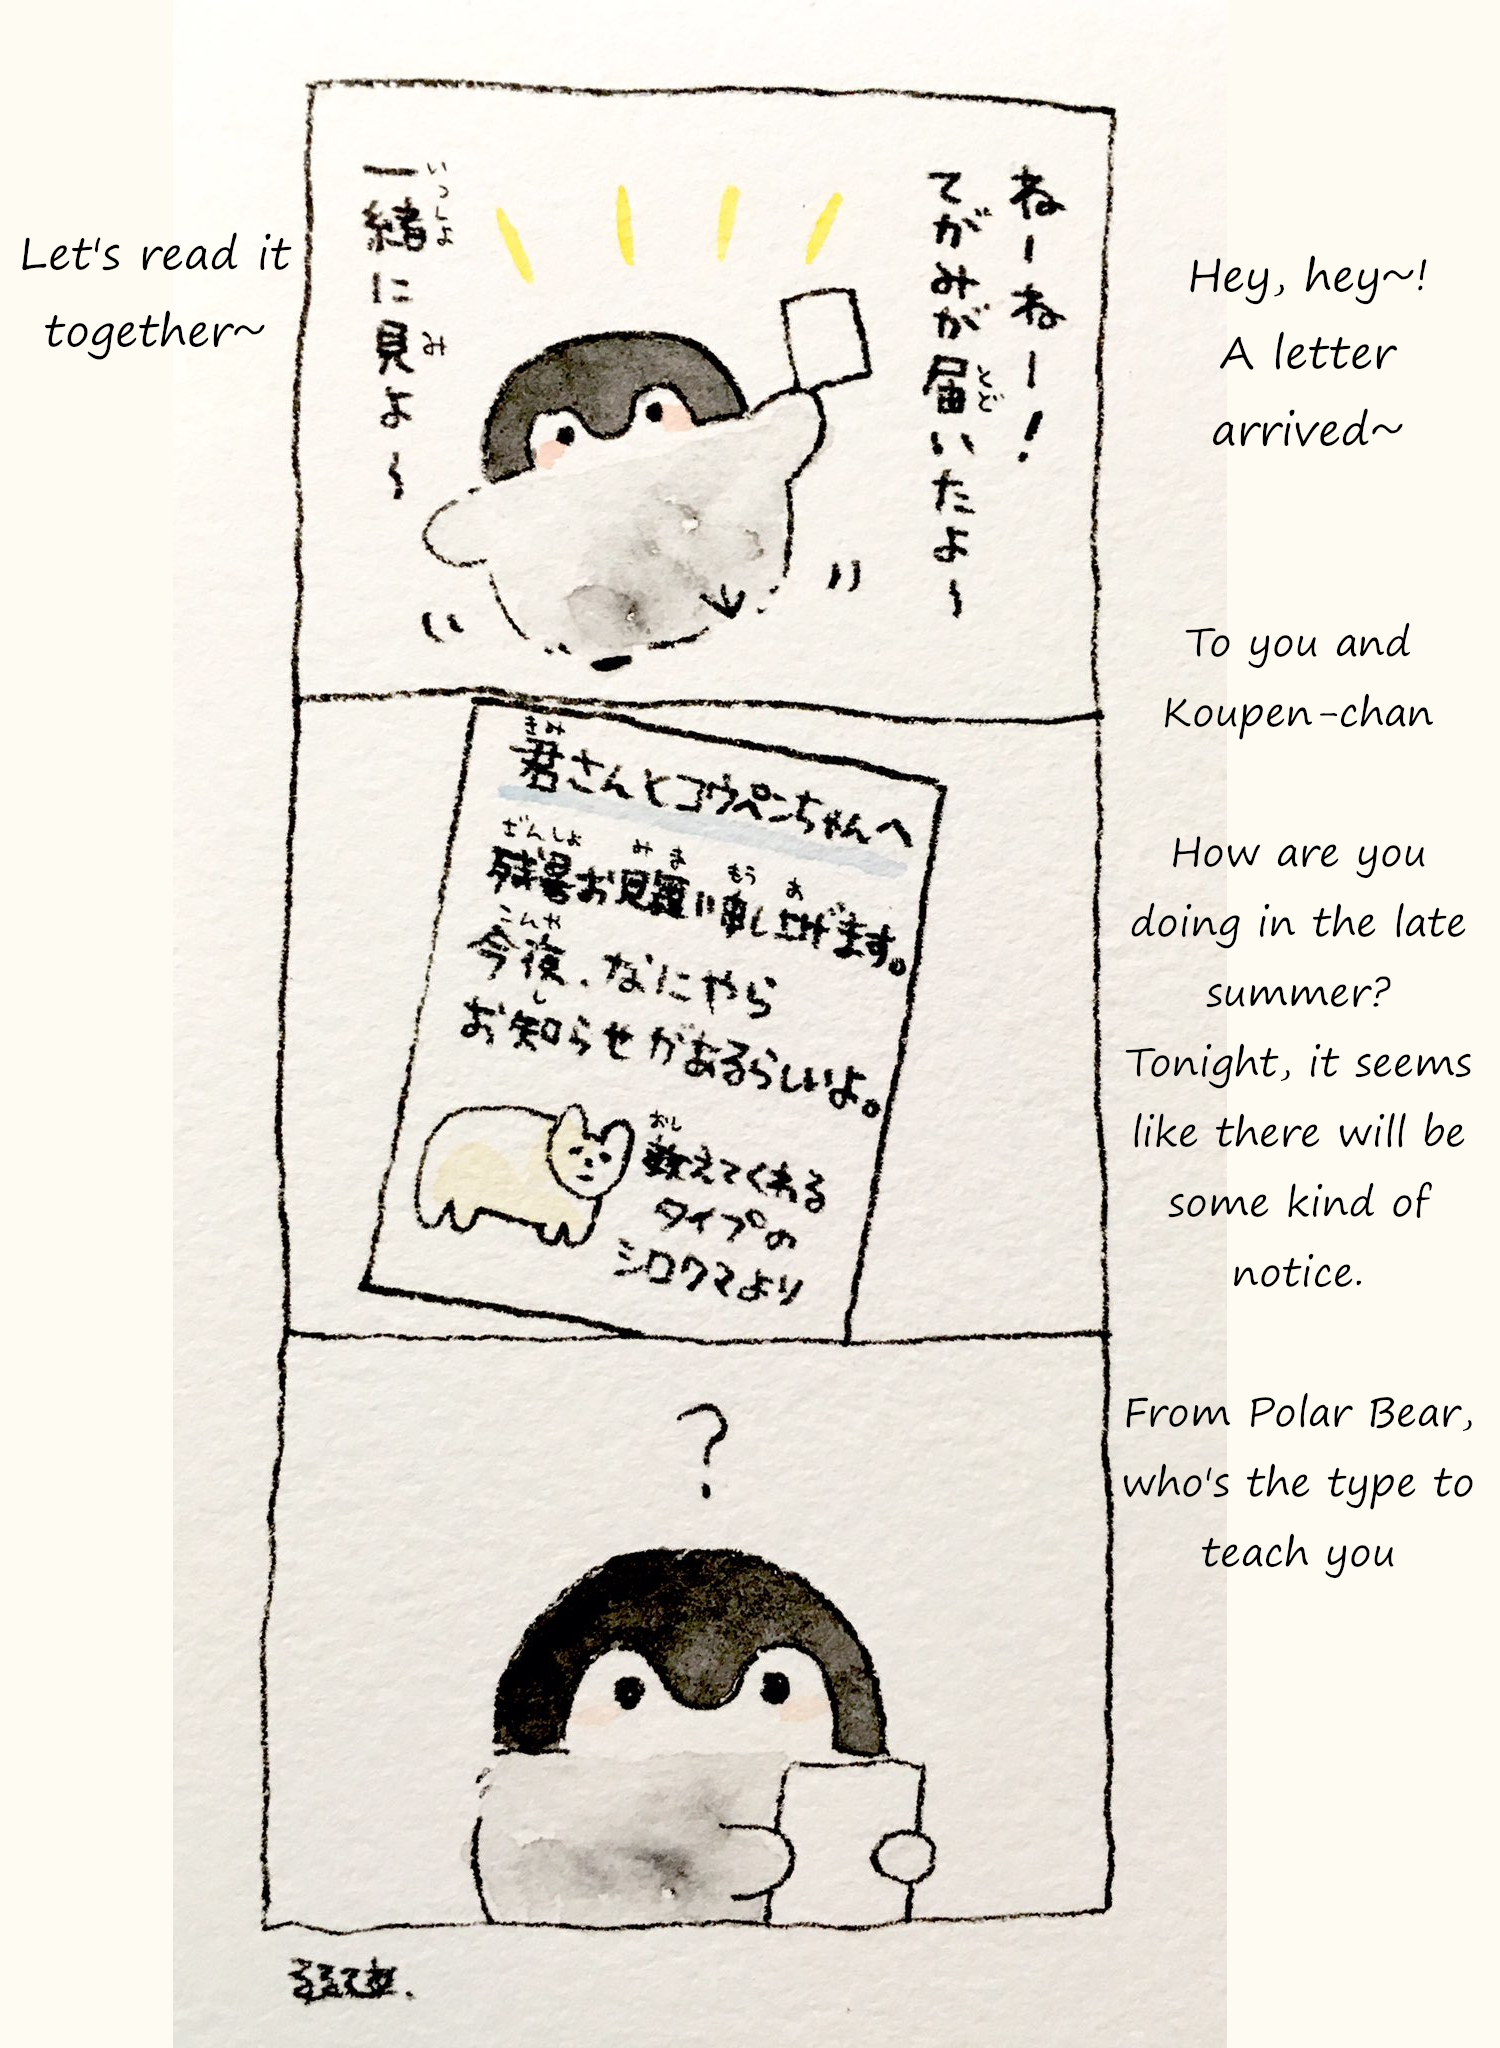 ねーねー！
てがみが届いたよ〜
とど
一緒に見よ〜
いっしょ
み
Hey, hey~!
A letter
arrived~
Let's read it
together~
きみ
君さんとコウペンちゃんへ
ざんしょ み ま もう あ
残暑お見舞い申し上げます。
こんや
今夜、なにやら
し
お知らせがあるらしいよ。
おし
教えてくれる
タイプの
シロクマより
To you and
Koupen-chan
How are you
doing in the late
summer?
Tonight, it seems
like there will be
some kind of
notice.
From Polar Bear,
who's the type to
teach you
?
るるてあ.